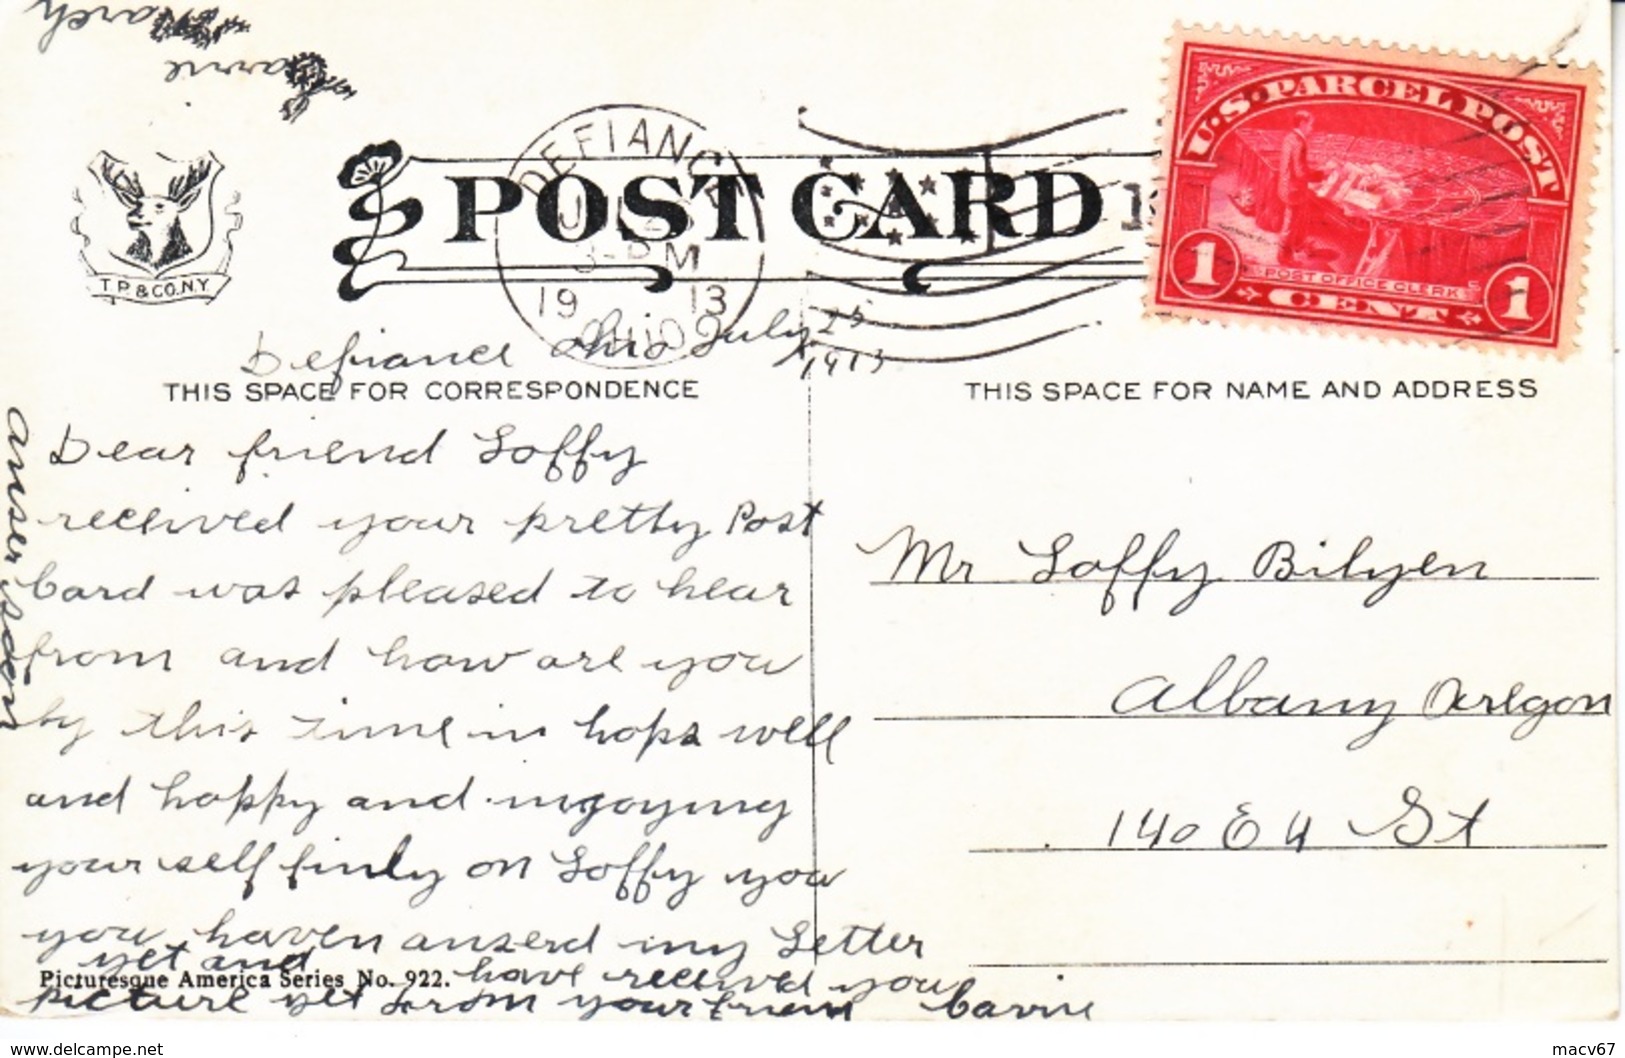 March
Carrie
T.P.&CO.N.Y.
POST CARD
DEFIANCE
3-PM
19 13
OHIO
U.S. PARCEL POST
1 1
POST OFFICE CLERK
CENT
Defiance Ohio July 25
1913
THIS SPACE FOR CORRESPONDENCE
THIS SPACE FOR NAME AND ADDRESS
Dear friend Loffy
received your pretty Post
Card was pleased to hear
from and how are you
by this time in hops well
and happy and ingoying
your self finly on Loffy you
you haven anserd my Letter
yet and have received you
picture yet from your frien Carrie
Picturesque America Series No. 922.
anser soon
Mr Loffy Bilyen
Albany Oregon
140 E 4 St
www.delcampe.net
macv67